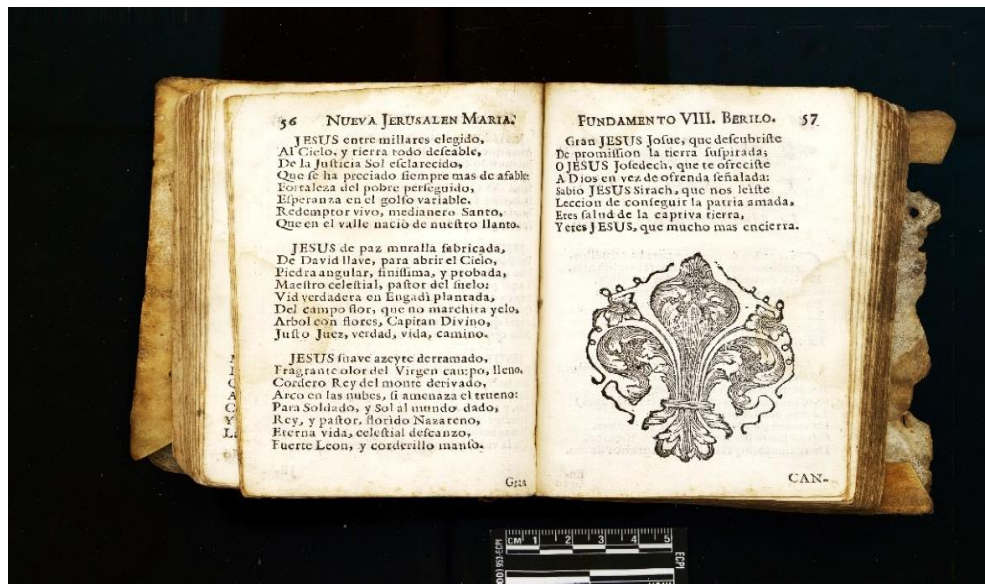 56 NUEVA JERUSALEN MARIA.
JESUS entre millares elegido,
Al Cielo, y tierra todo deseable,
De la Justicia Sol esclarecido,
Que se ha preciado siempre mas de afable
Fortaleza del pobre perseguido,
Esperanza en el golfo variable.
Redemptor vivo, medianero Santo,
Que en el valle naciò de nuestro llanto.
JESUS de paz muralla fabricada,
De David llave, para abrir el Cielo,
Piedra angular, finissima, y probada,
Maestro celestial, pastor del suelo:
Vid verdadera en Engadì plantada,
Del campo flor, que no marchita yelo,
Arbol con flores, Capitan Divino,
Justo Juez, verdad, vida, camino.
JESUS suave azeyte derramado,
Fragrante olor del Virgen campo, lleno,
Cordero Rey del monte derivado,
Arco en las nubes, si amenaza el trueno:
Para Soldado, y Sol al mundo dado,
Rey, y pastor, florido Nazareno,
Eterna vida, celestial descanzo,
Fuerte Leon, y corderillo manso.
Gran
FUNDAMENTO VIII. BERILO. 57
Gran JESUS Josue, que descubriste
De promission la tierra suspirada;
O JESUS Josedech, que te ofreciste
A Dios en vez de ofrenda señalada:
Sabio JESUS Sirach, que nos leìste
Leccion de conseguir la patria amada,
Eres salud de la captiva tierra,
Y eres JESUS, que mucho mas encierra.
CAN-
CM 1 2 3 4 5
ECPI